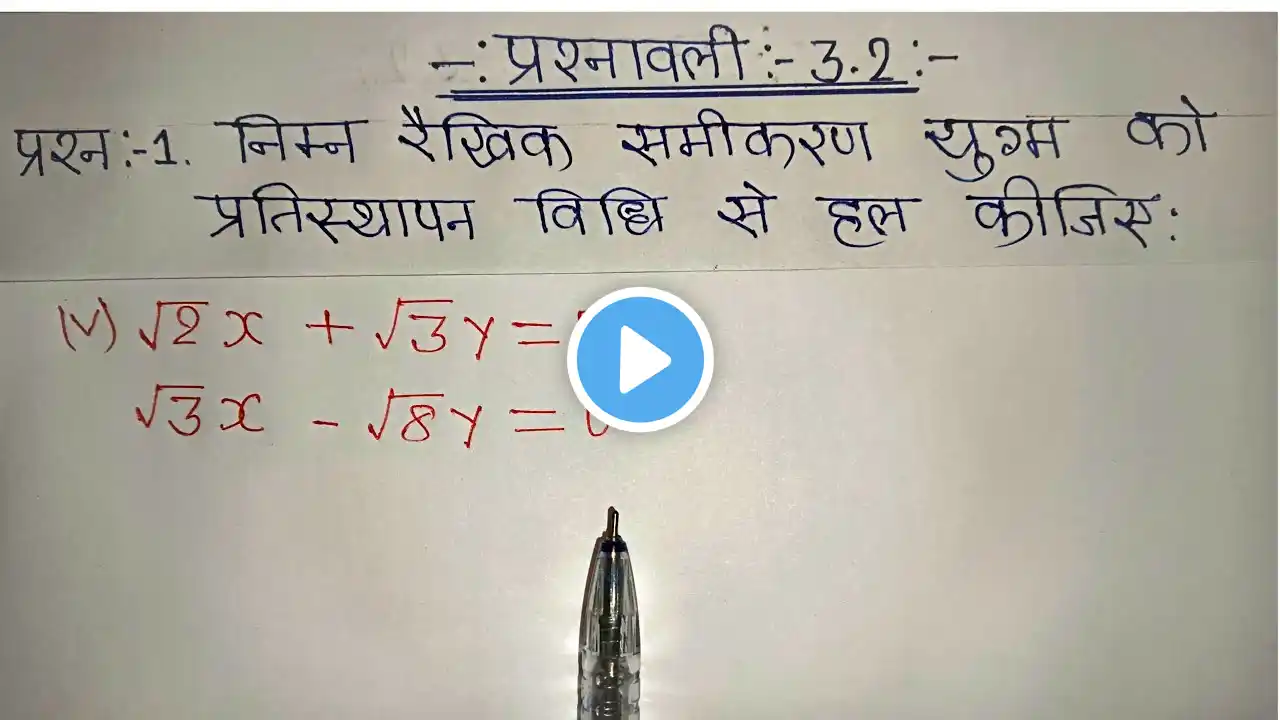 -: प्रश्नावली :- 3.2 :-
प्रश्न:-1. निम्न रैखिक समीकरण युग्म को
प्रतिस्थापन विधि से हल कीजिए:
(V) √2x + √3y =
√3x - √8y =